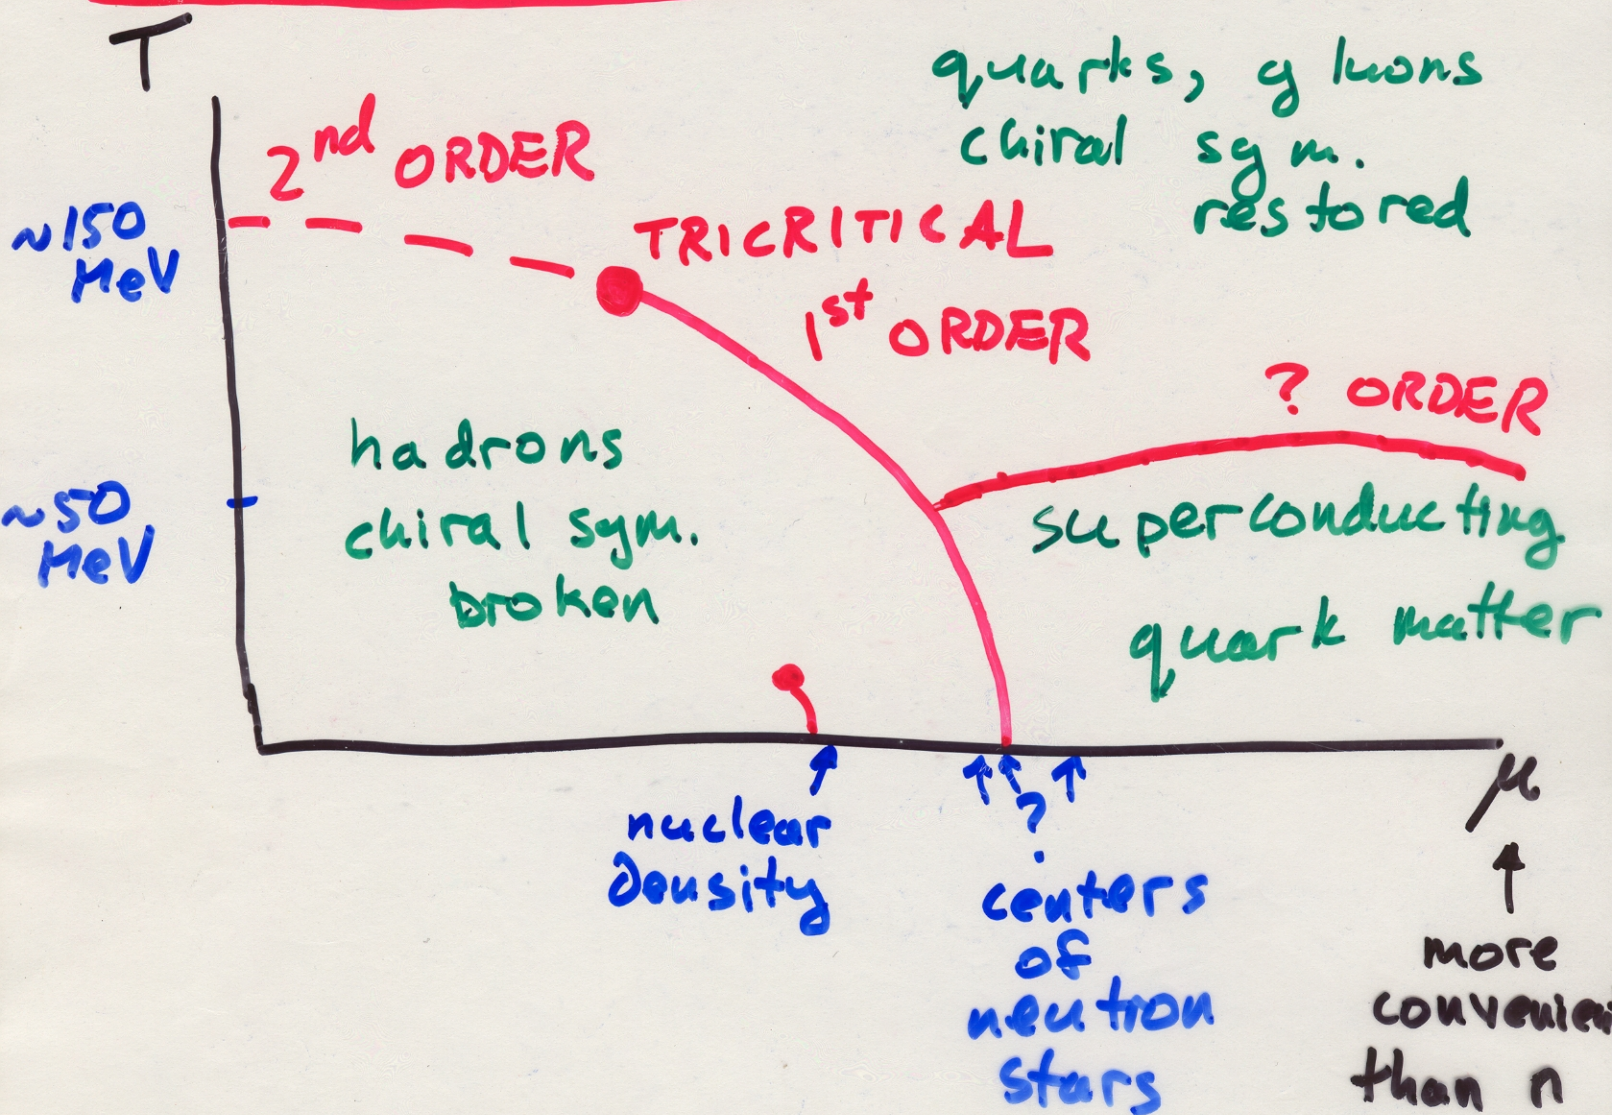 T
quarks, gluons
chiral sym.
restored
2nd ORDER
~150
MeV
TRICRITICAL
1st ORDER
? ORDER
hadrons
chiral sym.
broken
~50
MeV
superconducting
quark matter
μ
nuclear
density
?
centers
of
neutron
stars
more
convenien
than n